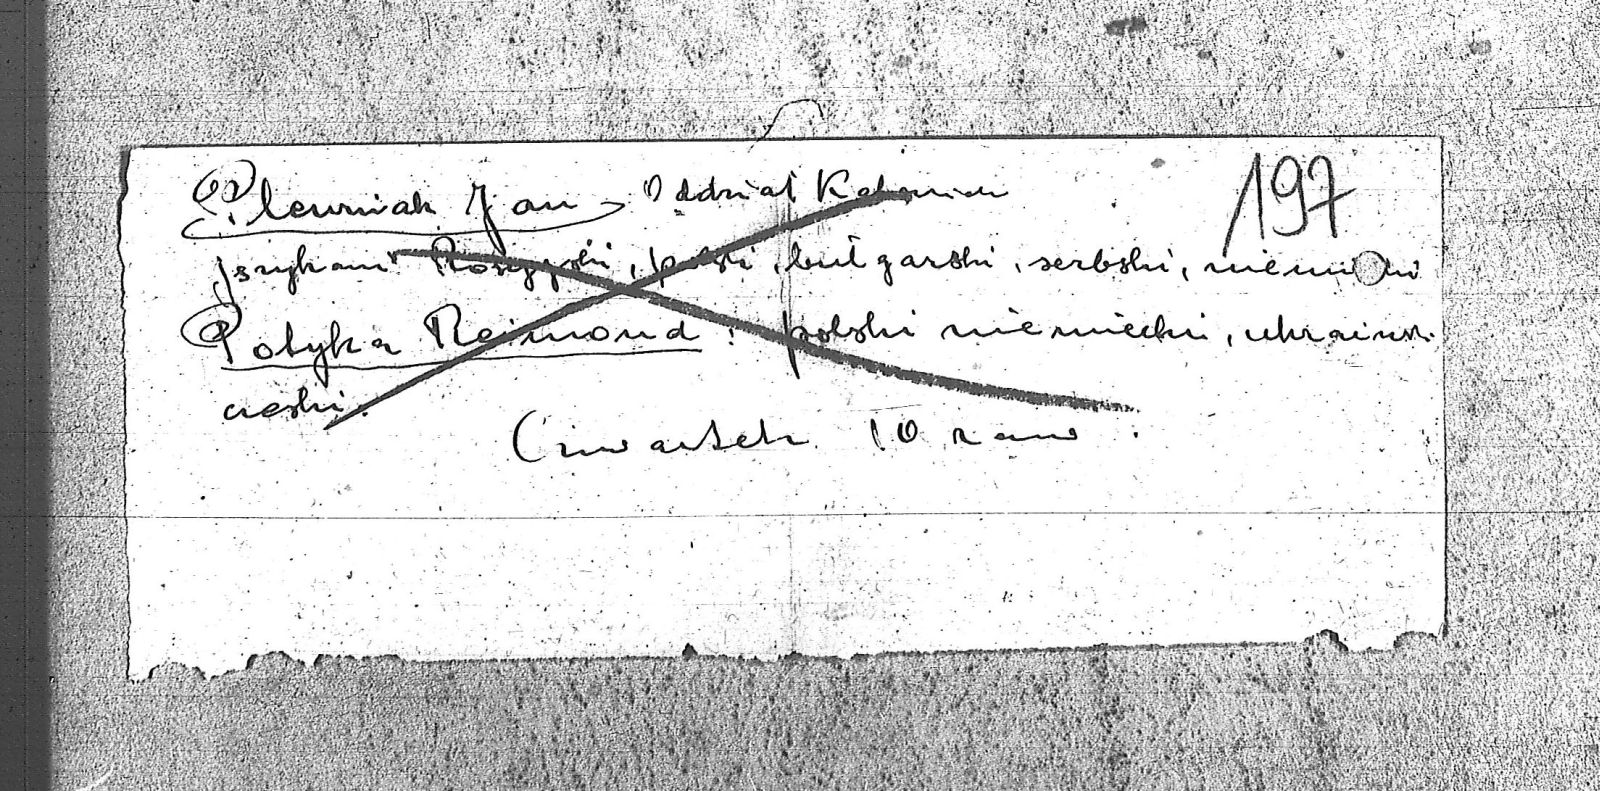 Plewniak Jan, Oddział 197
językami Rosyjski, polski, bułgarski, serbski, niemiecki
Potyka Reimond: polski niemiecki, ukraiński
czeski.
Czwartek 10 rano.